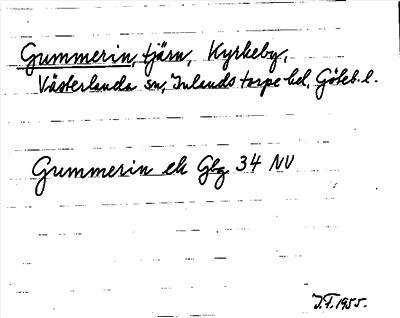 Gummerin, tjärn, Kyrkeby,
Västerlanda sn, Inlands torpe hd, Göteb. l.
Gummerin ek Gbg 34 NV
J.F. 1955.